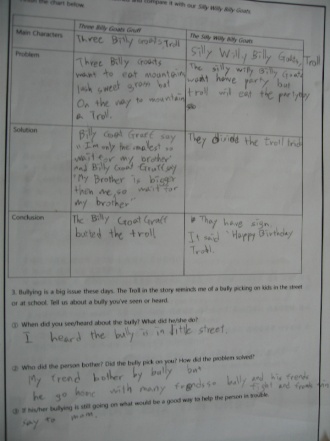 the chart below. and compare it with our Silly Willy Billy Goats.
Three Billy Goats Gruff
The Silly Willy Billy Goats
Main Characters
Three Billy Goats, Troll
Silly Willy Billy Goats, Troll
Problem
Three Billy Goats
want to eat mountain
look sweet grass but
On the way to mountain
a Troll.
The silly willy Billy Goats
want have party but
troll will eat the party
Solution
Billy Goat Gruff say
"I'm only the smallest so
wait for my brother"
and Billy Goat Gruff say
"My Brother is bigger
than me so wait for
my brother"
They the troll
Conclusion
The Billy Goat Gruff
the troll.
They have sign.
It said "Happy Birthday
Troll.
3. Bullying is a big issue these days. The Troll in the story reminds me of a bully picking on kids in the street
or at school. Tell us about a bully you've seen or heard.
① When did you see/heard about the bully? What did he/she do?
I heard the bully is in little street.
② Who did the person bother? Did the bully pick on you? How did the problem solved?
My friend bother by bully but
he go home with many friends so bully and his friends
fight and friends win
③ If his/her bullying is still going on what would be a good way to help the person in trouble.
say to mom